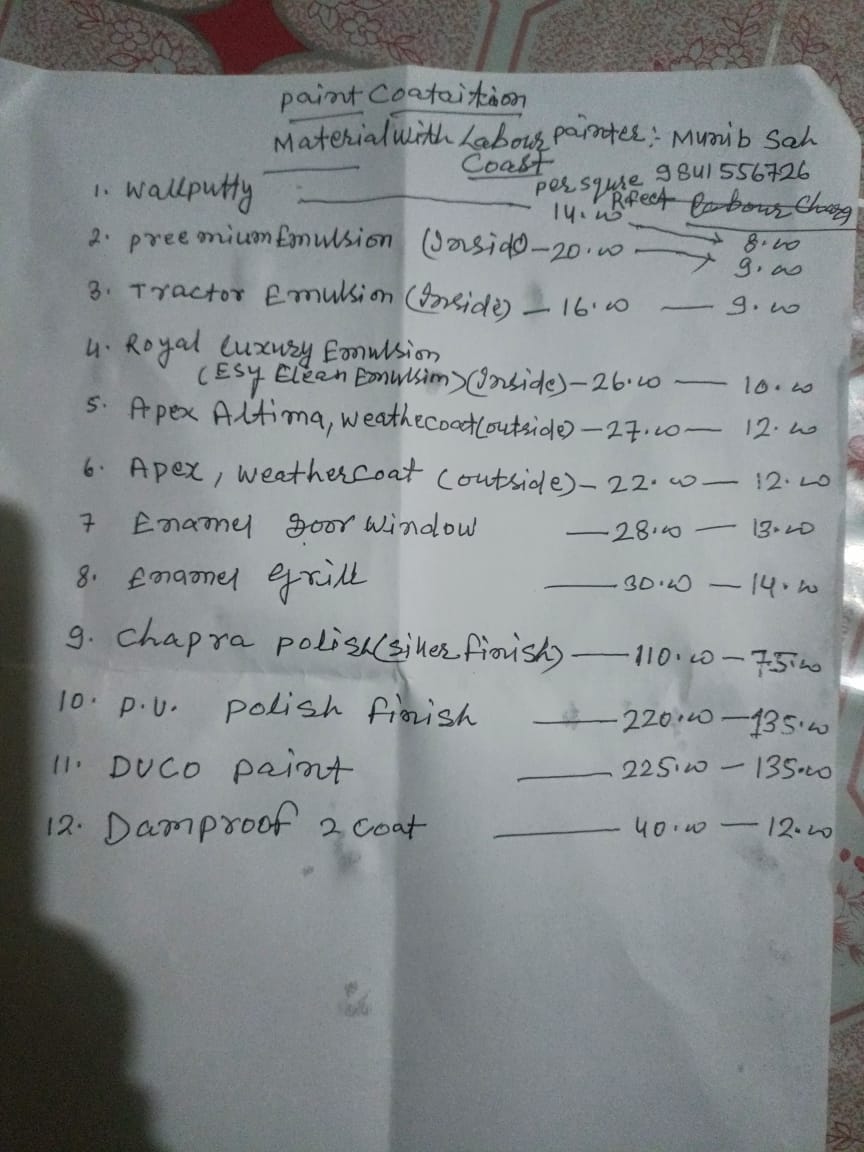 paint Coataition
Material with Labour painter:- Munib Sah
Coast 9841556726
per squre Rfeet Labour Charg
1. Wallputty — 14.00 → 8.00
2. pree mium Emulsion (Inside) – 20.00 → 9.00
3. Tractor Emulsion (Inside) – 16.00 — 9.00
4. Royal luxury Emulsion
(ESy Elean Emulsion) (Inside) – 26.00 — 10.00
5. Apex Altima, weathecoat (outside) – 27.00 — 12.00
6. Apex, weathercoat (outside) – 22.00 — 12.00
7 Enamel Door window — 28.00 — 13.00
8. Enamel grill — 30.00 — 14.00
9. Chapra polish (silker finish) — 110.00 – 75.00
10. P.U. polish finish — 220.00 — 135.00
11. DUCO paint — 225.00 – 135.00
12. Damproof 2 coat — 40.00 — 12.00